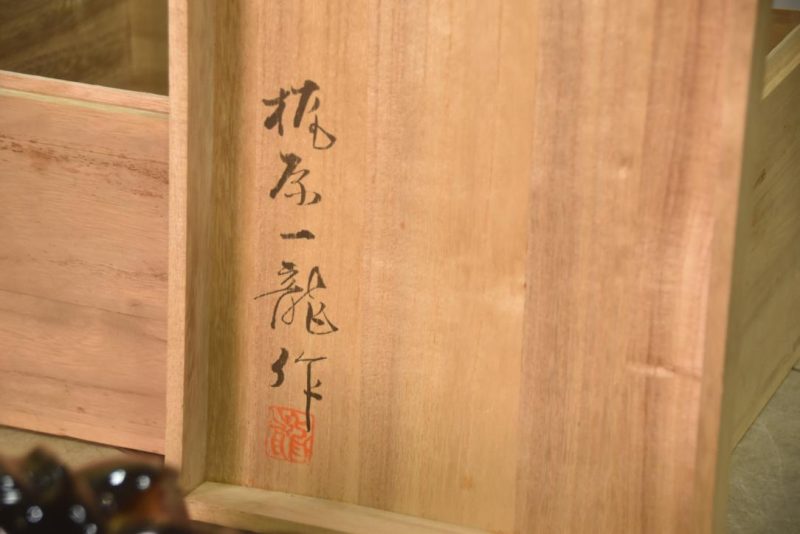 梶原一龍作
龍